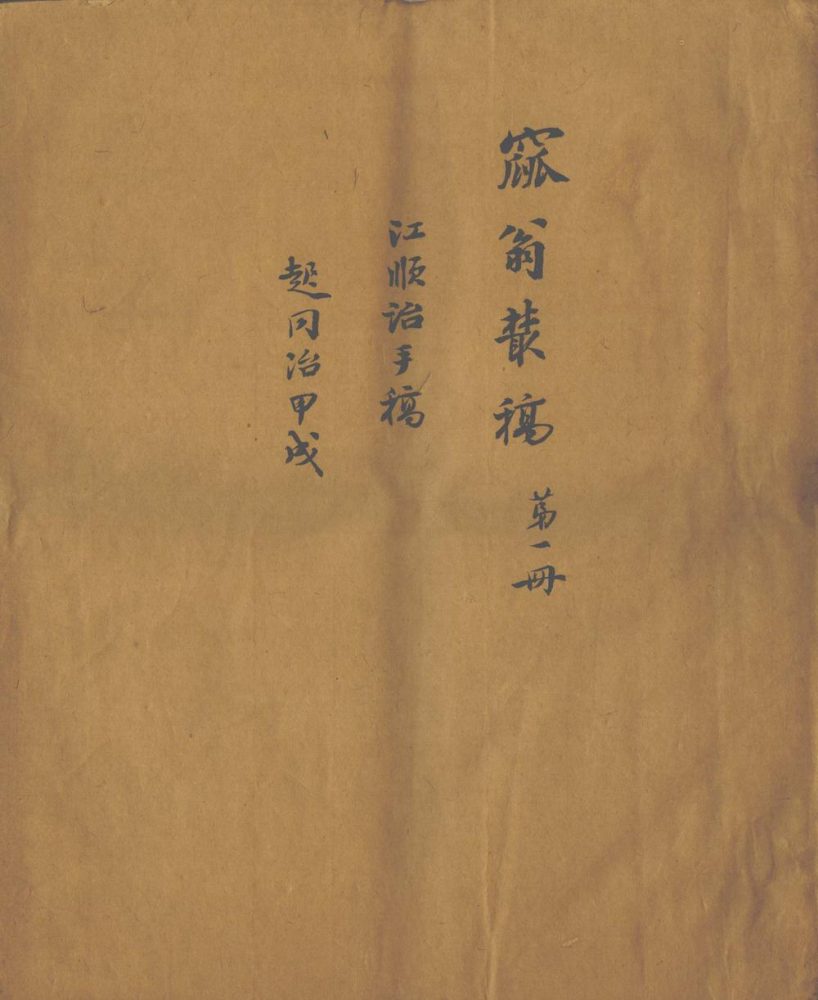 窳翁叢稿 苐一冊
江順詒手稿
起同治甲戌